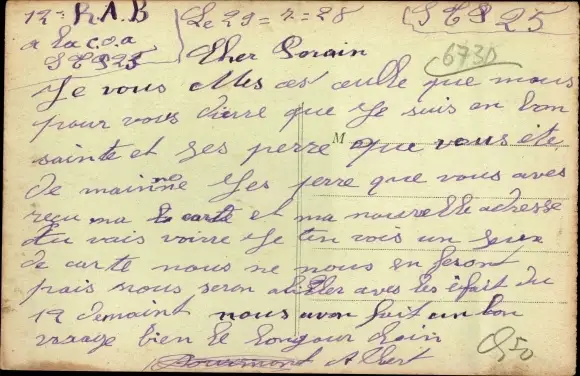 12e R.A.B
Le 29 = 2 = 28
S P 25
a la c.o.a
S P 25
Cher Porain
673D
Je vous ces que mous
pour vous dierre que Je suis en bon
sainte et Jes perre que vous ete
M
de mainme Jes perre que vous aves
reçu ma la carte et ma nouvelle adresse
tu vais voirre Je ten vois un Jeux
de carte nous ne nous en feront
pais nous seron abiller aves les éfait du
12 demaint nous avon fait un bon
voiage bien le bongour
Albert
50